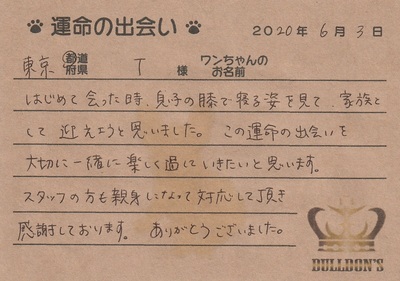 運命の出会い
2020年 6月 3日
東京 都道府県 T 様 ワンちゃんのお名前
はじめて会った時、息子の膝で寝る姿を見て、家族と
して迎えようと思いました。この運命の出会いを
大切に一緒に楽しく過していきたいと思います。
スタッフの方も親身になって対応して頂き
感謝しております。ありがとうございました。
BULLDON'S